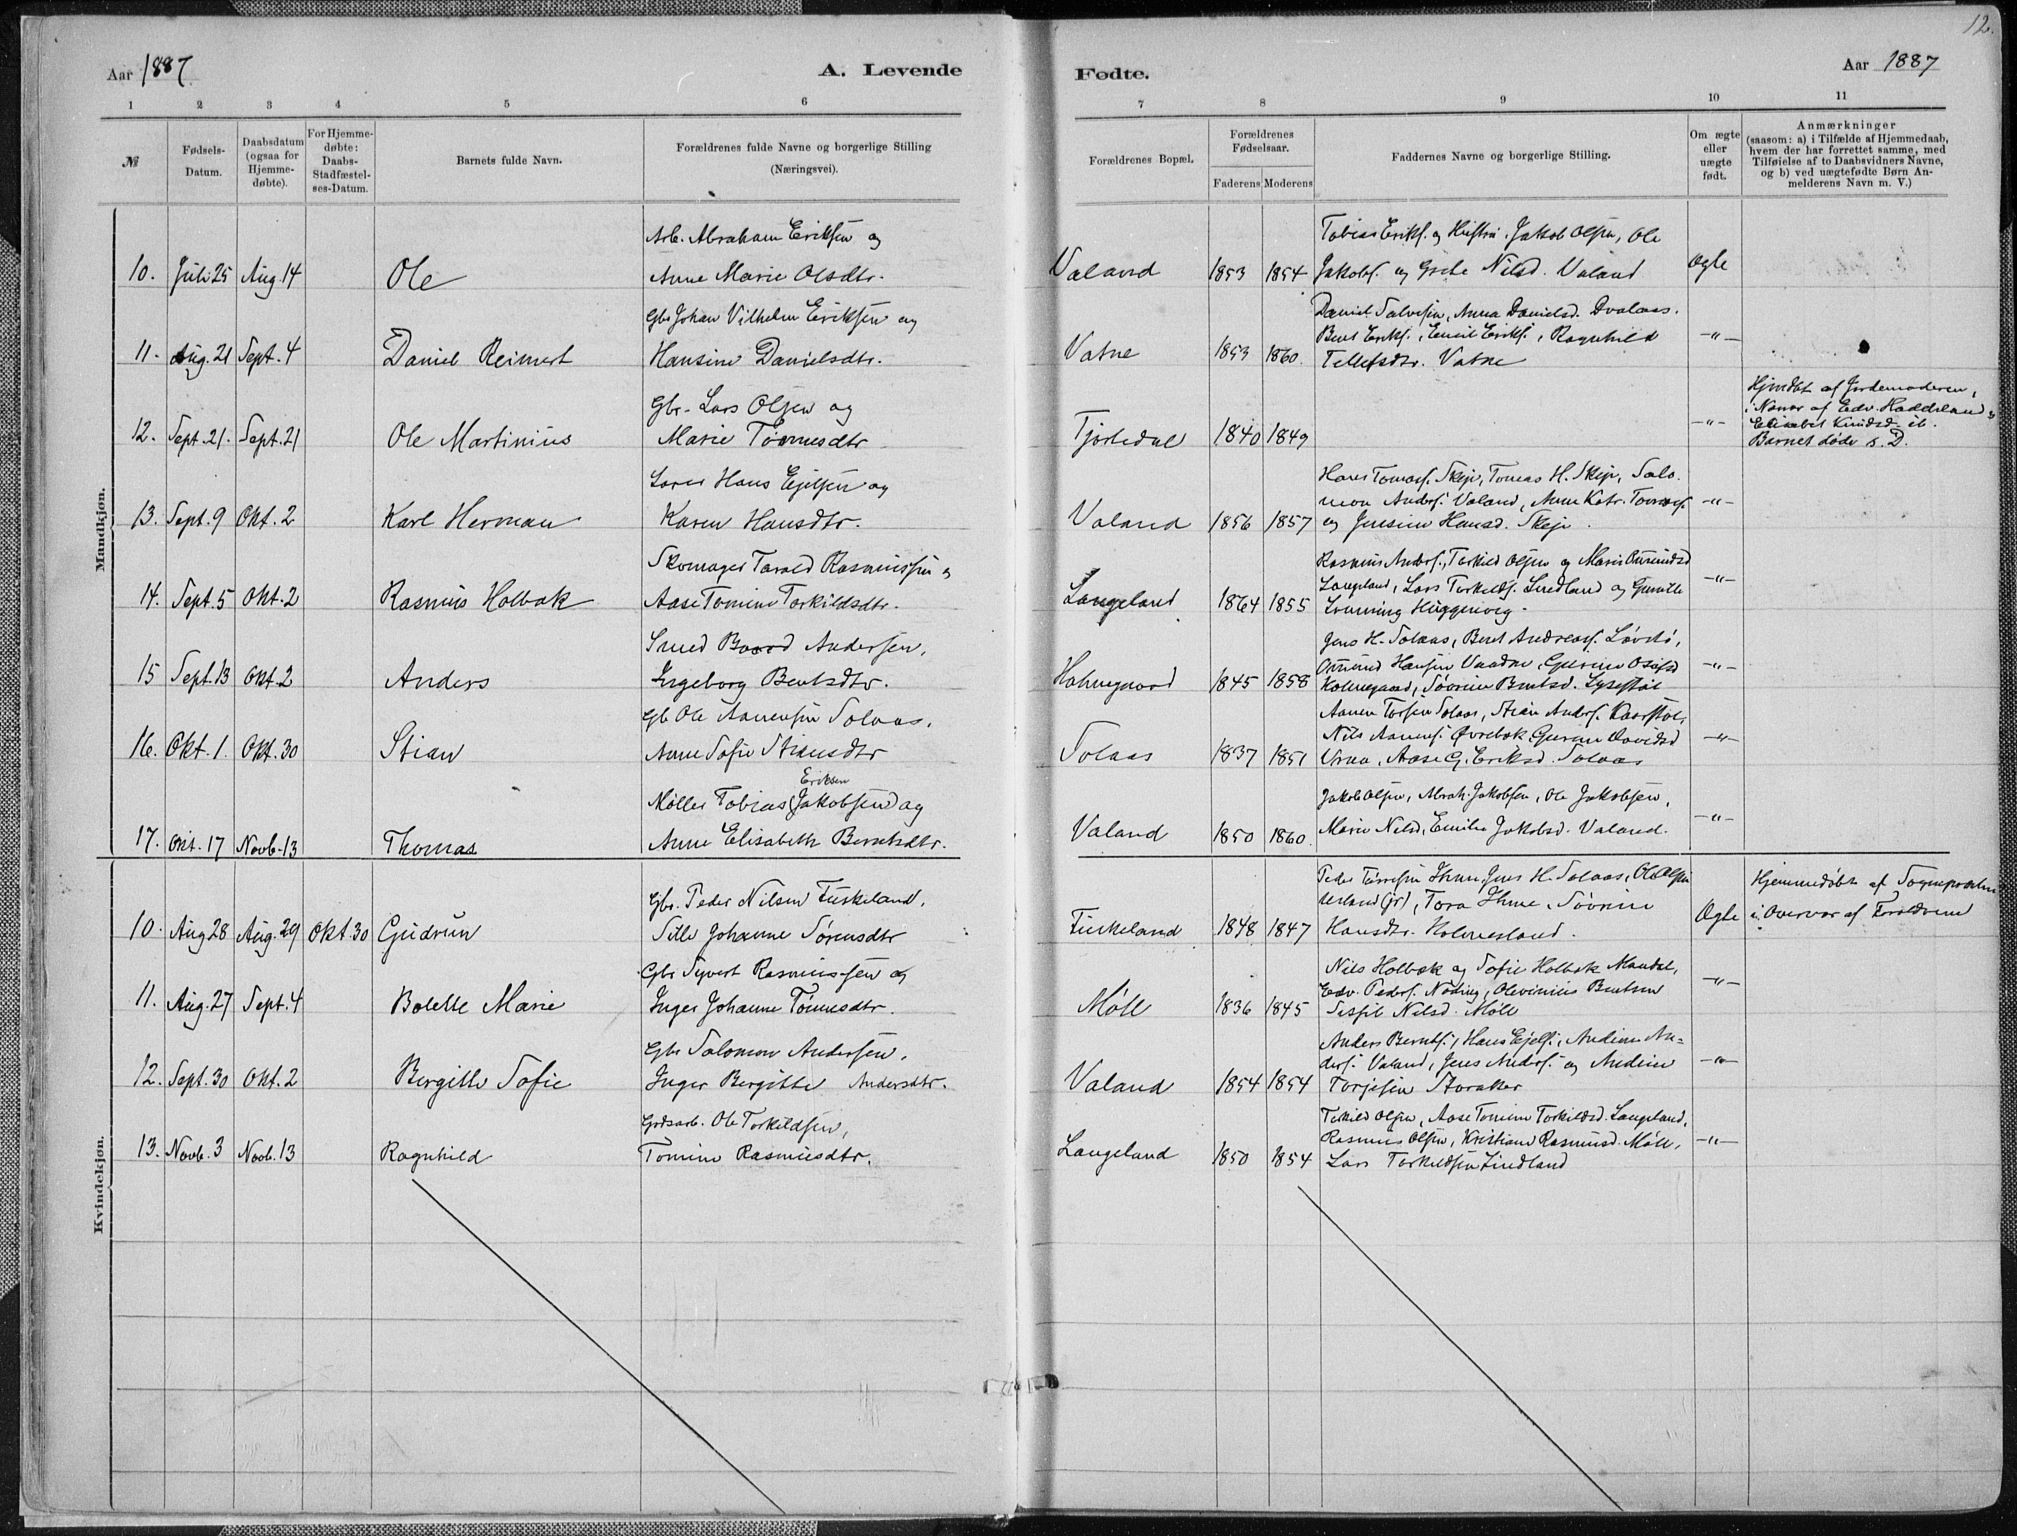 12.
Aar 1887
A. Levende
Fødte.
Aar 1887
1 2 3 4 5 6 7 8 9 10 11
№
Fødsels-
Datum.
Daabsdatum
(ogsaa for
Hjemme-
døbte).
For Hjemme-
døbte:
Daabs-
Stadfæstel-
ses-Datum.
Barnets fulde Navn.
Forældrenes fulde Navne og borgerlige Stilling
(Næringsvei).
Forældrenes Bopæl.
Forældrenes
Fødselsaar.
Faderens Moderens
Faddernes Navne og borgerlige Stilling.
Om ægte
eller
uægte
født.
Anmærkninger
(saasom: a) i Tilfælde af Hjemmedaab,
hvem der har forrettet samme, med
Tilføielse af to Daabsvidners Navne,
og b) ved uægtefødte Børn An-
melderens Navn m. V.)
Mandkjøn.
Arb. Abraham Eriksen og
10. Juli 25 Aug. 14 Ole Anne Marie Olsdtr.
Valand 1853 1854
Tobias Eriks. og Hustru. Jakob Olsen, Ole
Jakobs. og Grete Nilsd. Valand
Ægte
Gbr Johan Vilhelm Eriksen og
11. Aug. 21 Sept. 4 Daniel Reimert Hansine Danielsdtr.
Vatne 1853 1860
Daniel Salvesen, Anna Danielsd. Dvalaas.
Bent Eriks., Emil Eriks., Ragnhild
Tellefsdtr. Vatne
-"-
Gbr. Lars Olsen og
12. Sept. 21. Sept. 21 Ole Martinius Marie Tønnesdtr
Tjortedal 1840 1849
-"-
Hjmdbt af Jordemoderen,
i Nærvær af Edv. Haddeland &
Elisabet Knudsd. ib.
Barnet døde s. D.
Hans Ejelsen og
13. Sept. 9 Okt. 2 Karl Herman Karen Hansdtr.
Valand 1856 1857
Hans Tomass. Skeje, Tomas H. Skeje, Salo-
mon Anders. Valand, Anne Katr. Tomass.
og Jensine Hansd. Skeje.
-"-
Skomager Tarald Rasmussen og
14. Sept. 5 Okt. 2 Rasmus Holbæk Aase Tomine Torkildsdtr.
Langeland 1864 1855
Rasmus Anders., Torkild Olsen og Maria Omundsd
Langeland, Lars Torkilds. Lindland og Gunille
-"-
Smed Baard Andersen,
15 Sept. 13 Okt. 2 Anders Ingeborg Bentsdtr.
Holmegaard 1845 1858
Jens H. Solaas, Bent Andreass.
Omund Hansen
Holmegaard, Søvrine Bentsd.
-"-
Gb. Ole Aanensen Solaas,
16. Okt. 1. Okt. 30 Stian Anne Sofie Stiansdtr
Solaas 1837 1851
Aanen Torsen Solaas, Stian Anders. Kaarstøl,
Nils Aanens. Øvrebøk, Gurine Davidsd
Aase G. Eriksd. Solaas
-"-
Eriksen
Møller Tobias (Jakobsen) og
17. Okt. 17 Novb. 13 Thomas Anne Elisabeth Berntsdtr.
Valand 1850 1860.
Jakob Olsen, Abrah. Jakobsen, Ole Jakobsen,
Marie Nilsd, Emilie Jakobsd. Valand.
-"-
Kvindekjøn.
Gbr. Peder Nilsen Fuskeland,
10. Aug 28 Aug. 29 Okt 30 Gudrun Sille Johanne Sørensdtr
Fuskeland 1848 1847
Peder Tørresen Ihme, Jens H. Solaas, Ole Olsen
Tora Ihme, Søvrine
Hansdtr. Holmesland.
Ægte
Hjemmedøbt af Sognepræsten
i Overvær af Forældrene
Gbr Syvert Rasmussen og
11. Aug. 27 Sept. 4 Bolette Marie Inger Johanne Tønnesdtr.
Møll 1836 1845
Nils Holbæk og Sofie Holbæk Mandal,
Edv. Peders. Noding, Olevinius Bentsen
Nilsd. Møll
-"-
Gbr Salomon Andersen,
12. Sept. 30 Okt. 2 Bergitte Sofie Inger Bergitte Andersdtr.
Valand 1854 1854
Anders Bernts., Hans Ejels., Andine An-
ders. Valand, Jens Anders. og Andine
Torjesen Storaker
-"-
Grdsarb. Ole Torkildsen,
13. Novb. 3 Novb. 13 Ragnhild Tomine Rasmusdtr.
Langeland 1850 1854
Torkild Olsen, Aase Tomine Torkildsd. Langeland,
Rasmus Olsen, Kristiane Rasmusd. Møll,
Lars Torkildsen Lindland
-"-